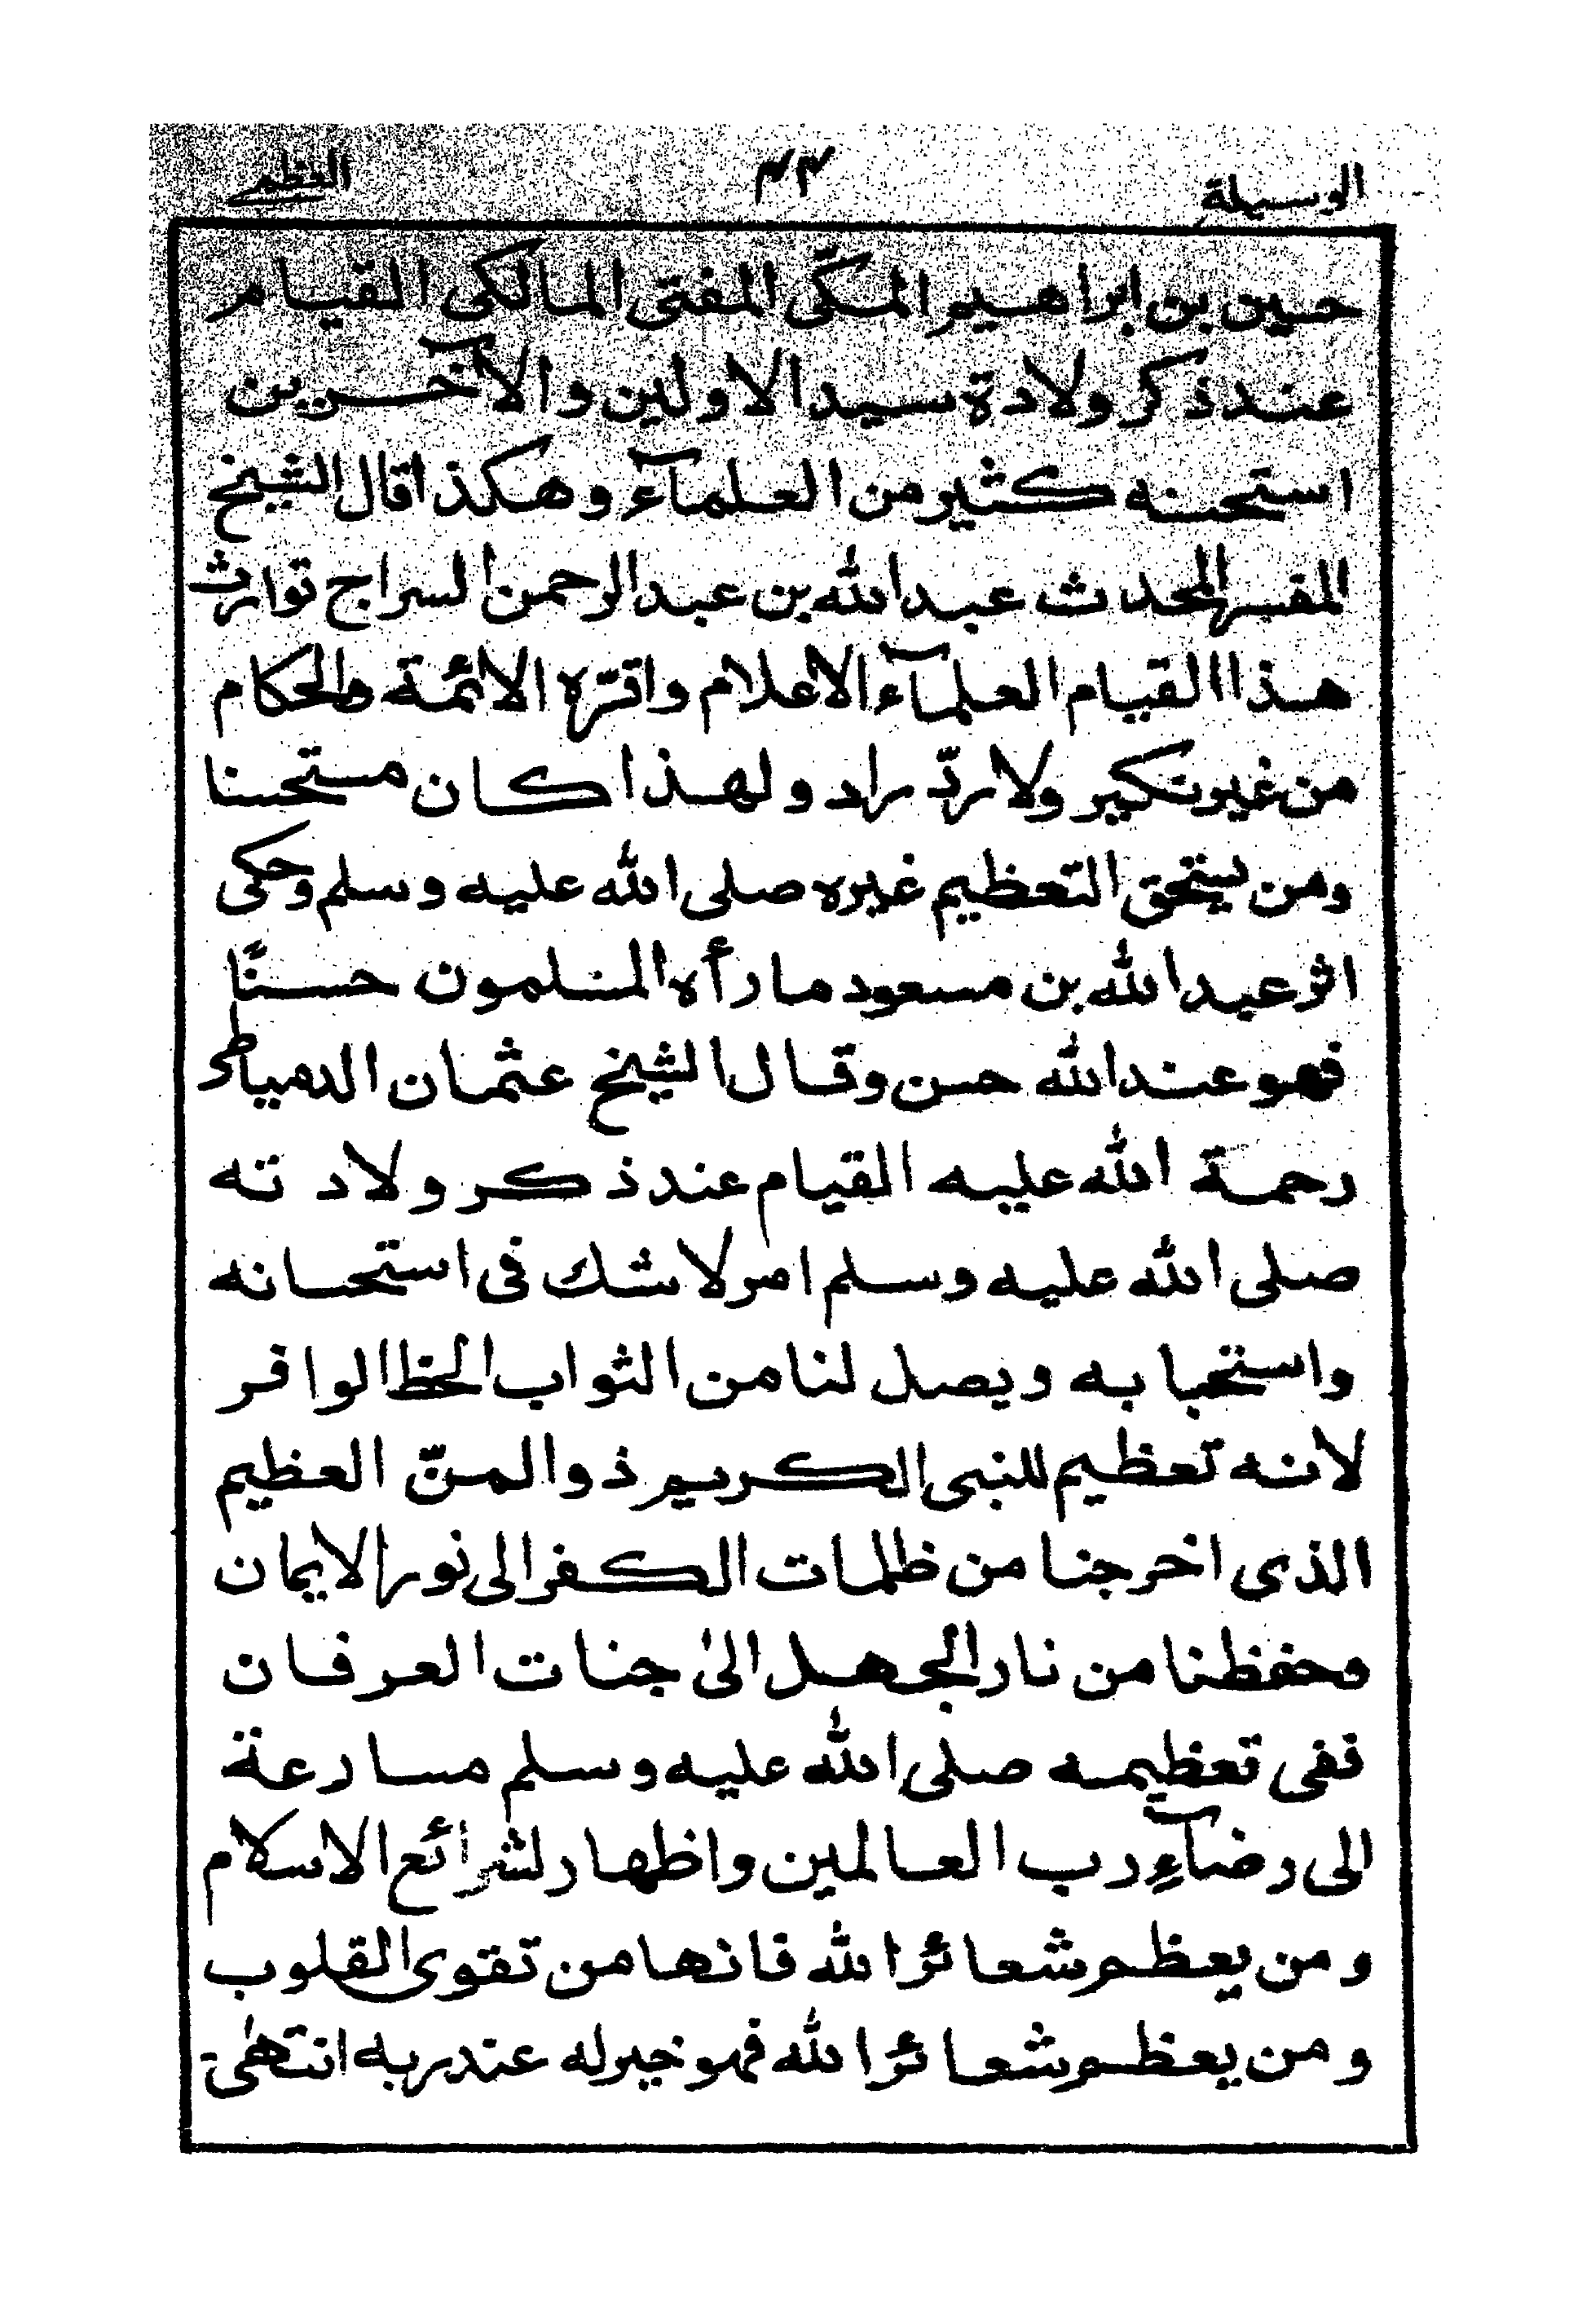 الوسيلة ٤٣ العظمى
حسين بن ابراهيم المكّى المفتى المالكى القيام
عند ذكر ولادة سيد الاولين والآخرين
استحسنه كثير من العلمآء وهكذا قال الشيخ
المفسر المحدث عبد الله بن عبد الرحمن السراج توارث
هذا القيام العلمآء الاعلام واقرّه الائمة والحكام
من غير نكير ولا ردّ راد ولهذا كان مستحسنا
ومن يستحق التعظيم غيره صلى الله عليه وسلم وحكى
اثر عبد الله بن مسعود ما رأه المسلمون حسنًا
فهو عند الله حسن وقال الشيخ عثمان الدمياطى
رحمة الله عليه القيام عند ذكر ولادته
صلى الله عليه وسلم امر لا شك فى استحسانه
واستحبابه ويصل لنا من الثواب الحظ الوافر
لانه تعظيم للنبى الكريم ذو المنّ العظيم
الذى اخرجنا من ظلمات الكفر الى نور الايمان
وحفظنا من نار الجهل الىٰ جنات العرفان
ففى تعظيمه صلى الله عليه وسلم مسارعة
الى رضآءِ رب العالمين واظهار لشرائع الاسلام
ومن يعظم شعائر الله فانها من تقوى القلوب
ومن يعظم شعائر الله فهو خير له عند ربه انتهىٰ